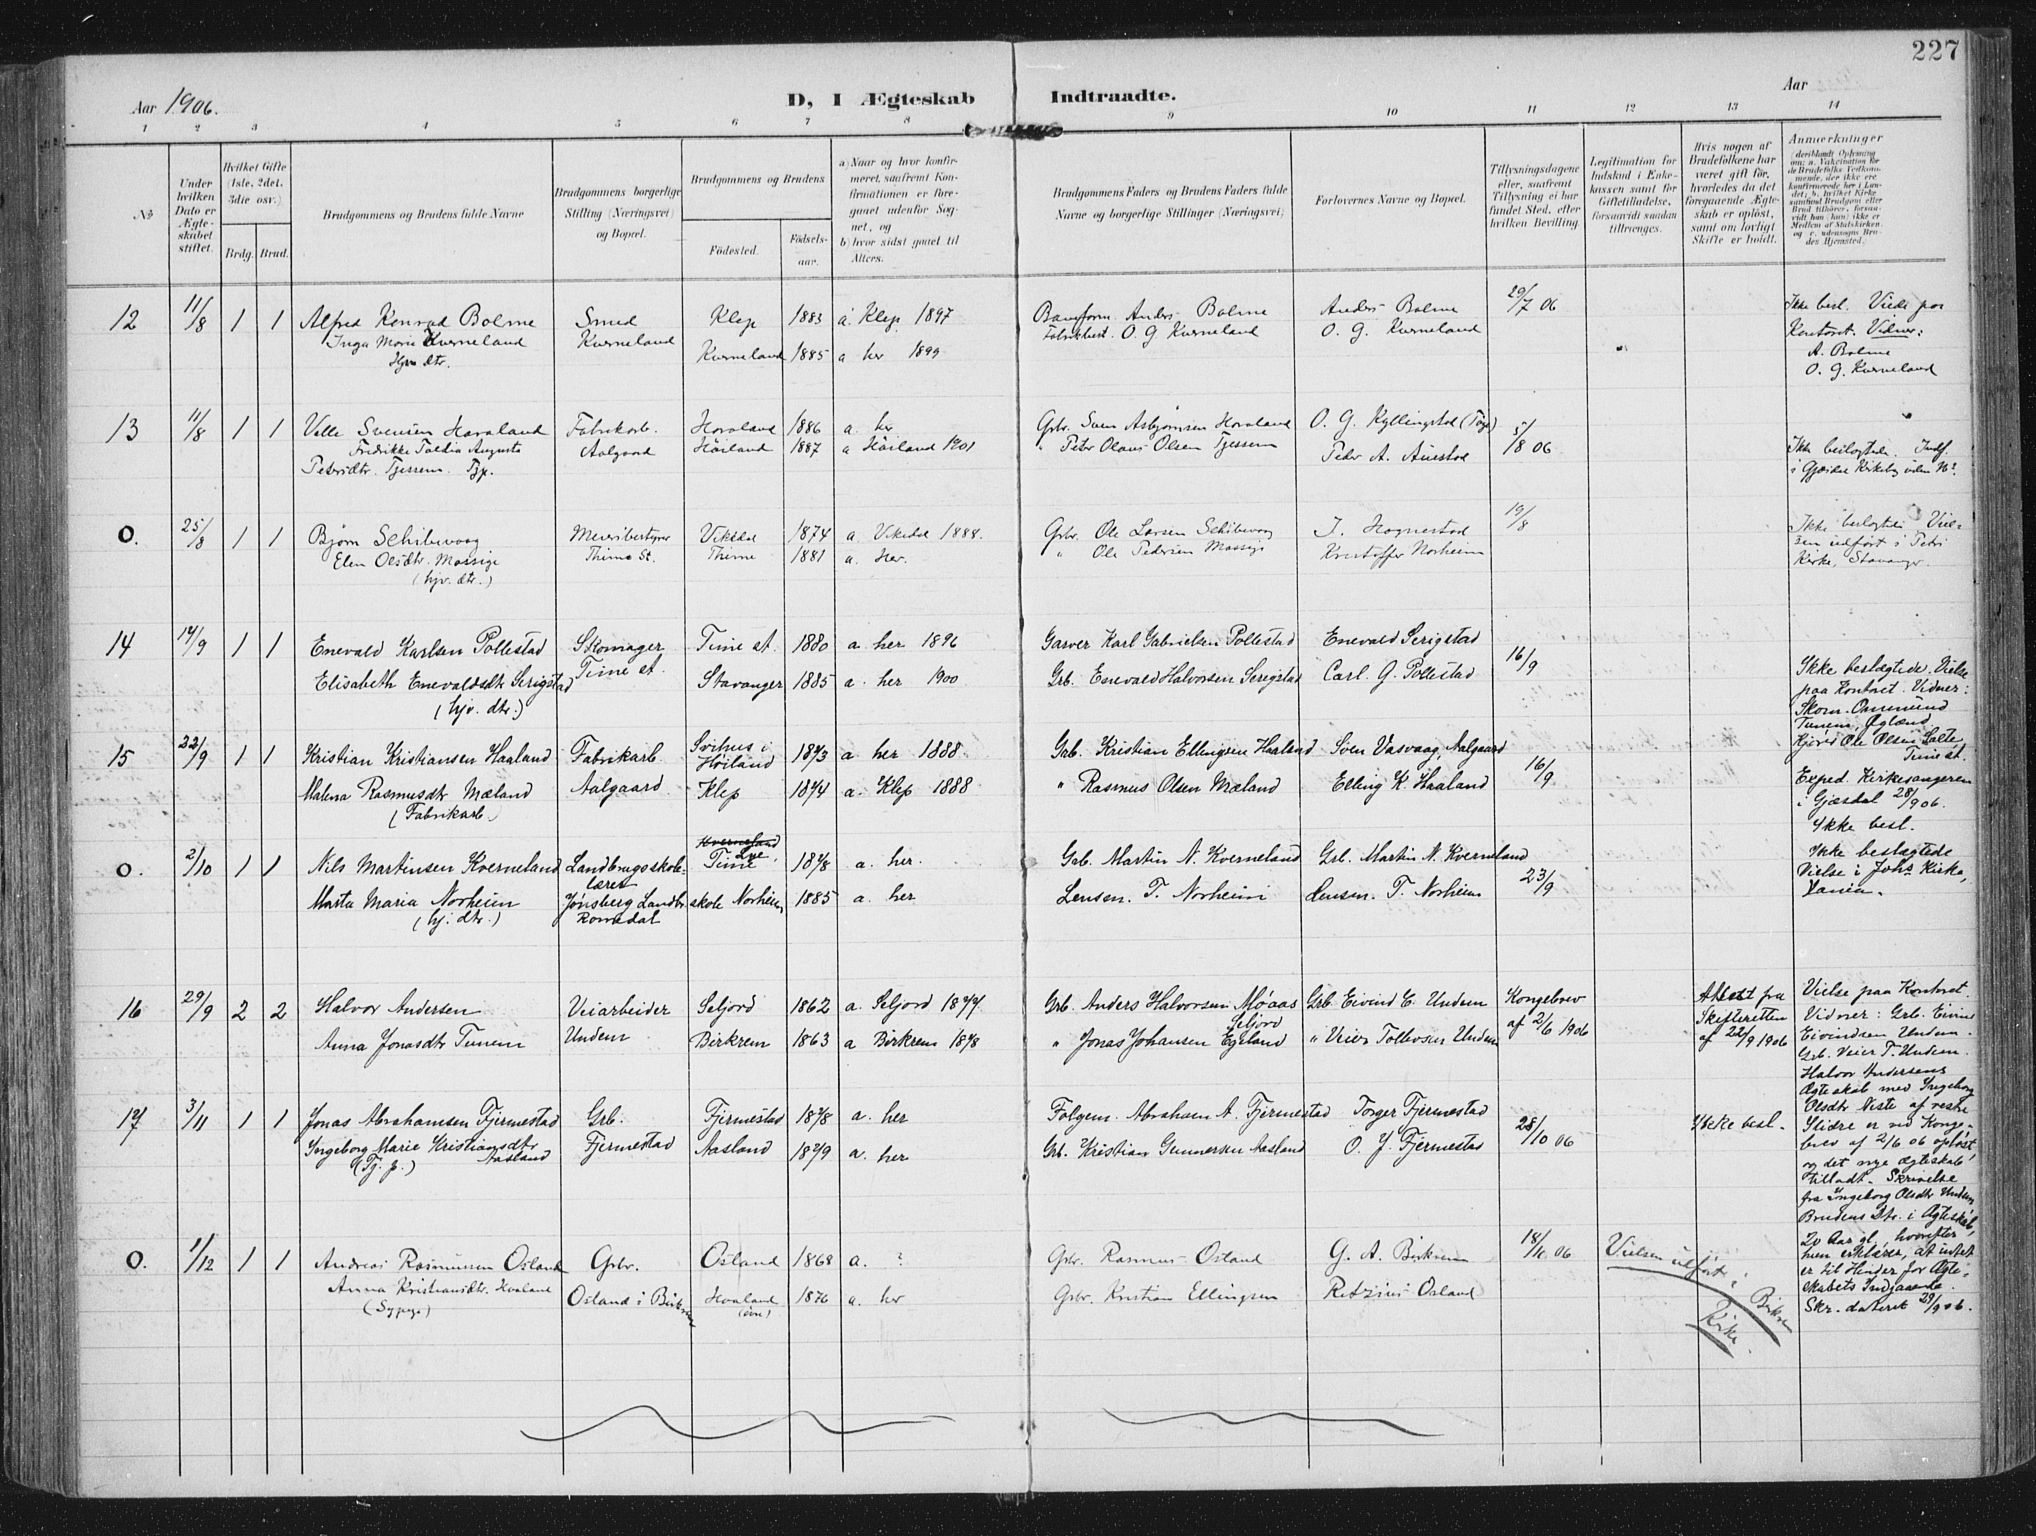 227
Aar 1906.
D, I Ægteskab Indtraadte.
Aar
1 2 3 4 5 6 7 8 9 10 11 12 13 14
No
Under hvilken Dato er Ægteskabet stiftet.
Hvilket Gifte (1ste, 2det, 3die osv.)
Brdg. Brud.
Brudgommens og Brudens fulde Navne
Brudgommens borgerlige Stilling (Næringsvei) og Bopæl.
Brudgommens og Brudens
Födested. Födselsaar.
a) Naar og hvor konfirmeret, saafremt Konfirmationen er foregaaet udenfor Sognet, og
b) hvor sidst gaaet til Alters.
Brudgommens Faders og Brudens Faders fulde Navne og borgerlige Stillinger (Næringsvei)
Forlovernes Navne og Bopæl.
Tillysningsdagene eller, saafremt Tillysning ei har fundet Sted, efter hvilken Bevilling.
Legitimation for Indskud i Enkekassen samt for Giftetilladelse, forsaavidt saadan tiltrænges.
Hvis nogen af Brudefolkene har været gift før, hvorledes da det foregaaende Ægteskab er oplöst, samt om lovligt Skifte er holdt.
Anmærkninger
12 11/8 1 1 Alfred Konrad Bolme Smed Klep 1883 a. Klep 1897 Baneform. Anders Bolme Anders Bolme 29/7 06 Ikke besl. Viede paa
Inga Marie Kverneland Kverneland Kverneland 1885 a her 1899 Fabrikbest. O. G. Kverneland O. G. Kverneland Kontoret. Vidner:
Hjv. dtr. A. Bolme
O. G. Kverneland
13 11/8 1 1 Velle Svensen Havaland Fabrikarb. 1886 a. her Grbr. Sven Asbjørnsen O. G. Kyllingstad 5/8 06
Fredrikke Augusta Aalgaard Höiland 1887 a Höiland 1901 " Peter Olaus Olsen Tjessem Peder A. Auestad Ikke beslægtede.
Petersdtr. Tjessem. Tjp.
0. 25/8 1 1 Bjørn Schibevaag Meieribestyrer Vikedal 1874 a Vikedal 1888. Grbr. Ole Larsen Schibevaag J. Hognestad 19/8 Ikke beslægtede Viel-
Elen Olsdtr. Mossige Thime St. Thime 1881 a. Her. " Ole Pedersen Mossige Kristoffer Norheim sen udført i Petri
(hjv. dtr.) Kirke, Stavanger.
14 14/9 1 1 Enevald Karlsen Pollestad Skomager Time st. 1880 a. her 1896 Garver Karl Gabrielsen Pollestad Enevald Serigstad 16/9
Elisabeth Enevaldsdtr Serigstad Time st. Stavanger 1885 a. her 1900 Grb. Enevald Halvorsen Serigstad Carl G. Pollestad Ikke beslægtede. Vielse
(hjv. dtr.) paa Kontoret. Vidner:
Skom. Ommund
Tunem, Øgland
15 22/9 1 1 Kristian Kristiansen Haaland Fabrikarb. Svihus i Höiland 1873 a her 1888. Grb. Kristian Ellingsen Haaland Sven Vasvaag, Aalgaard 16/9 Ole Olsen Salte
Time st.
Malena Rasmusdtr Mæland Aalgaard Klep 1874 a. Klep 1888 " Rasmus Olsen Mæland Elling K. Haaland Exped. Kirkesangeren
(Fabrikarb.) i Gjæsdal 28/9 06.
Ikke besl.
0. 2/10 1 1 Nils Martinsen Kverneland Landbrugsskolelærer Kverneland Lye, Time 1878 a. her. Grb. Martin N. Kverneland Grb. Martin N. Kverneland 23/9 Ikke beslægtede
Vielse i Johs Kirke,
Marta Maria Norheim Jönsberg Landbrskole Romedal Norheim 1885 a. her Lensm. T. Norheim Lensm. T. Norheim
(hj. dtr.)
16 29/9 2 2 Halvor Andersen Veiarbeider Seljord 1862 a. Seljord 1877. Grb. Anders Halvorsen Moaas Seljord Grb. Eivind E. Undem Kongebrev Attest fra Vielse paa Kontoret.
Anna Jonasdtr Tunem Undem Birkrem 1863 a Birkrem 1878 " Jonas Johansen Egeland " Veier Tollevsen Undem af 2/6 1906 Skifteretten af 22/9 1906 Vidner: Grb. Eivind
Eivindsen Undem.
Grb. Veier T. Undem.
Halvor Andersens
17 3/11 1 1 Jonas Abrahamsen Fjermestad Grb. Fjermestad 1878 a. her Folgem. Abraham A. Fjermestad Torger Fjermestad 28/10 06 Ikke besl. Ægteskab med Ingeborg
Ingeborg Marie Kristiansdtr Aasland Fjermestad Aasland 1879 a. her Grb. Kristian Gunnersen Aasland O. J. Fjermestad Olsdtr Niste af vestre
(Tj. p.) Slidre er ved Konge-
brev af 2/6 06 opløst
og det nye Ægteskab
tilladt. Skrivelse
fra Ingeborg Olsdtr Undem
Brudens Dtr. i Ægteskab,
0. 1/12 1 1 Andreas Rasmussen Osland Grbr. Osland 1868 a. ? Grbr. Rasmus Osland G. A. Birkrem 18/11 06 Vielsen udført i Birkrem Kirke. 20 Aar gl., hvorefter
hun erklærer, at intet
Anna Kristiansdtr. Haaland Osland i Birkrem Haaland 1876 a. her Grbr. Kristian Ellingsen Retzius Osland er til Hinder for Ægte-
(Sypige) skabets Indgaaende.
Skr. dateret 29/9 06.